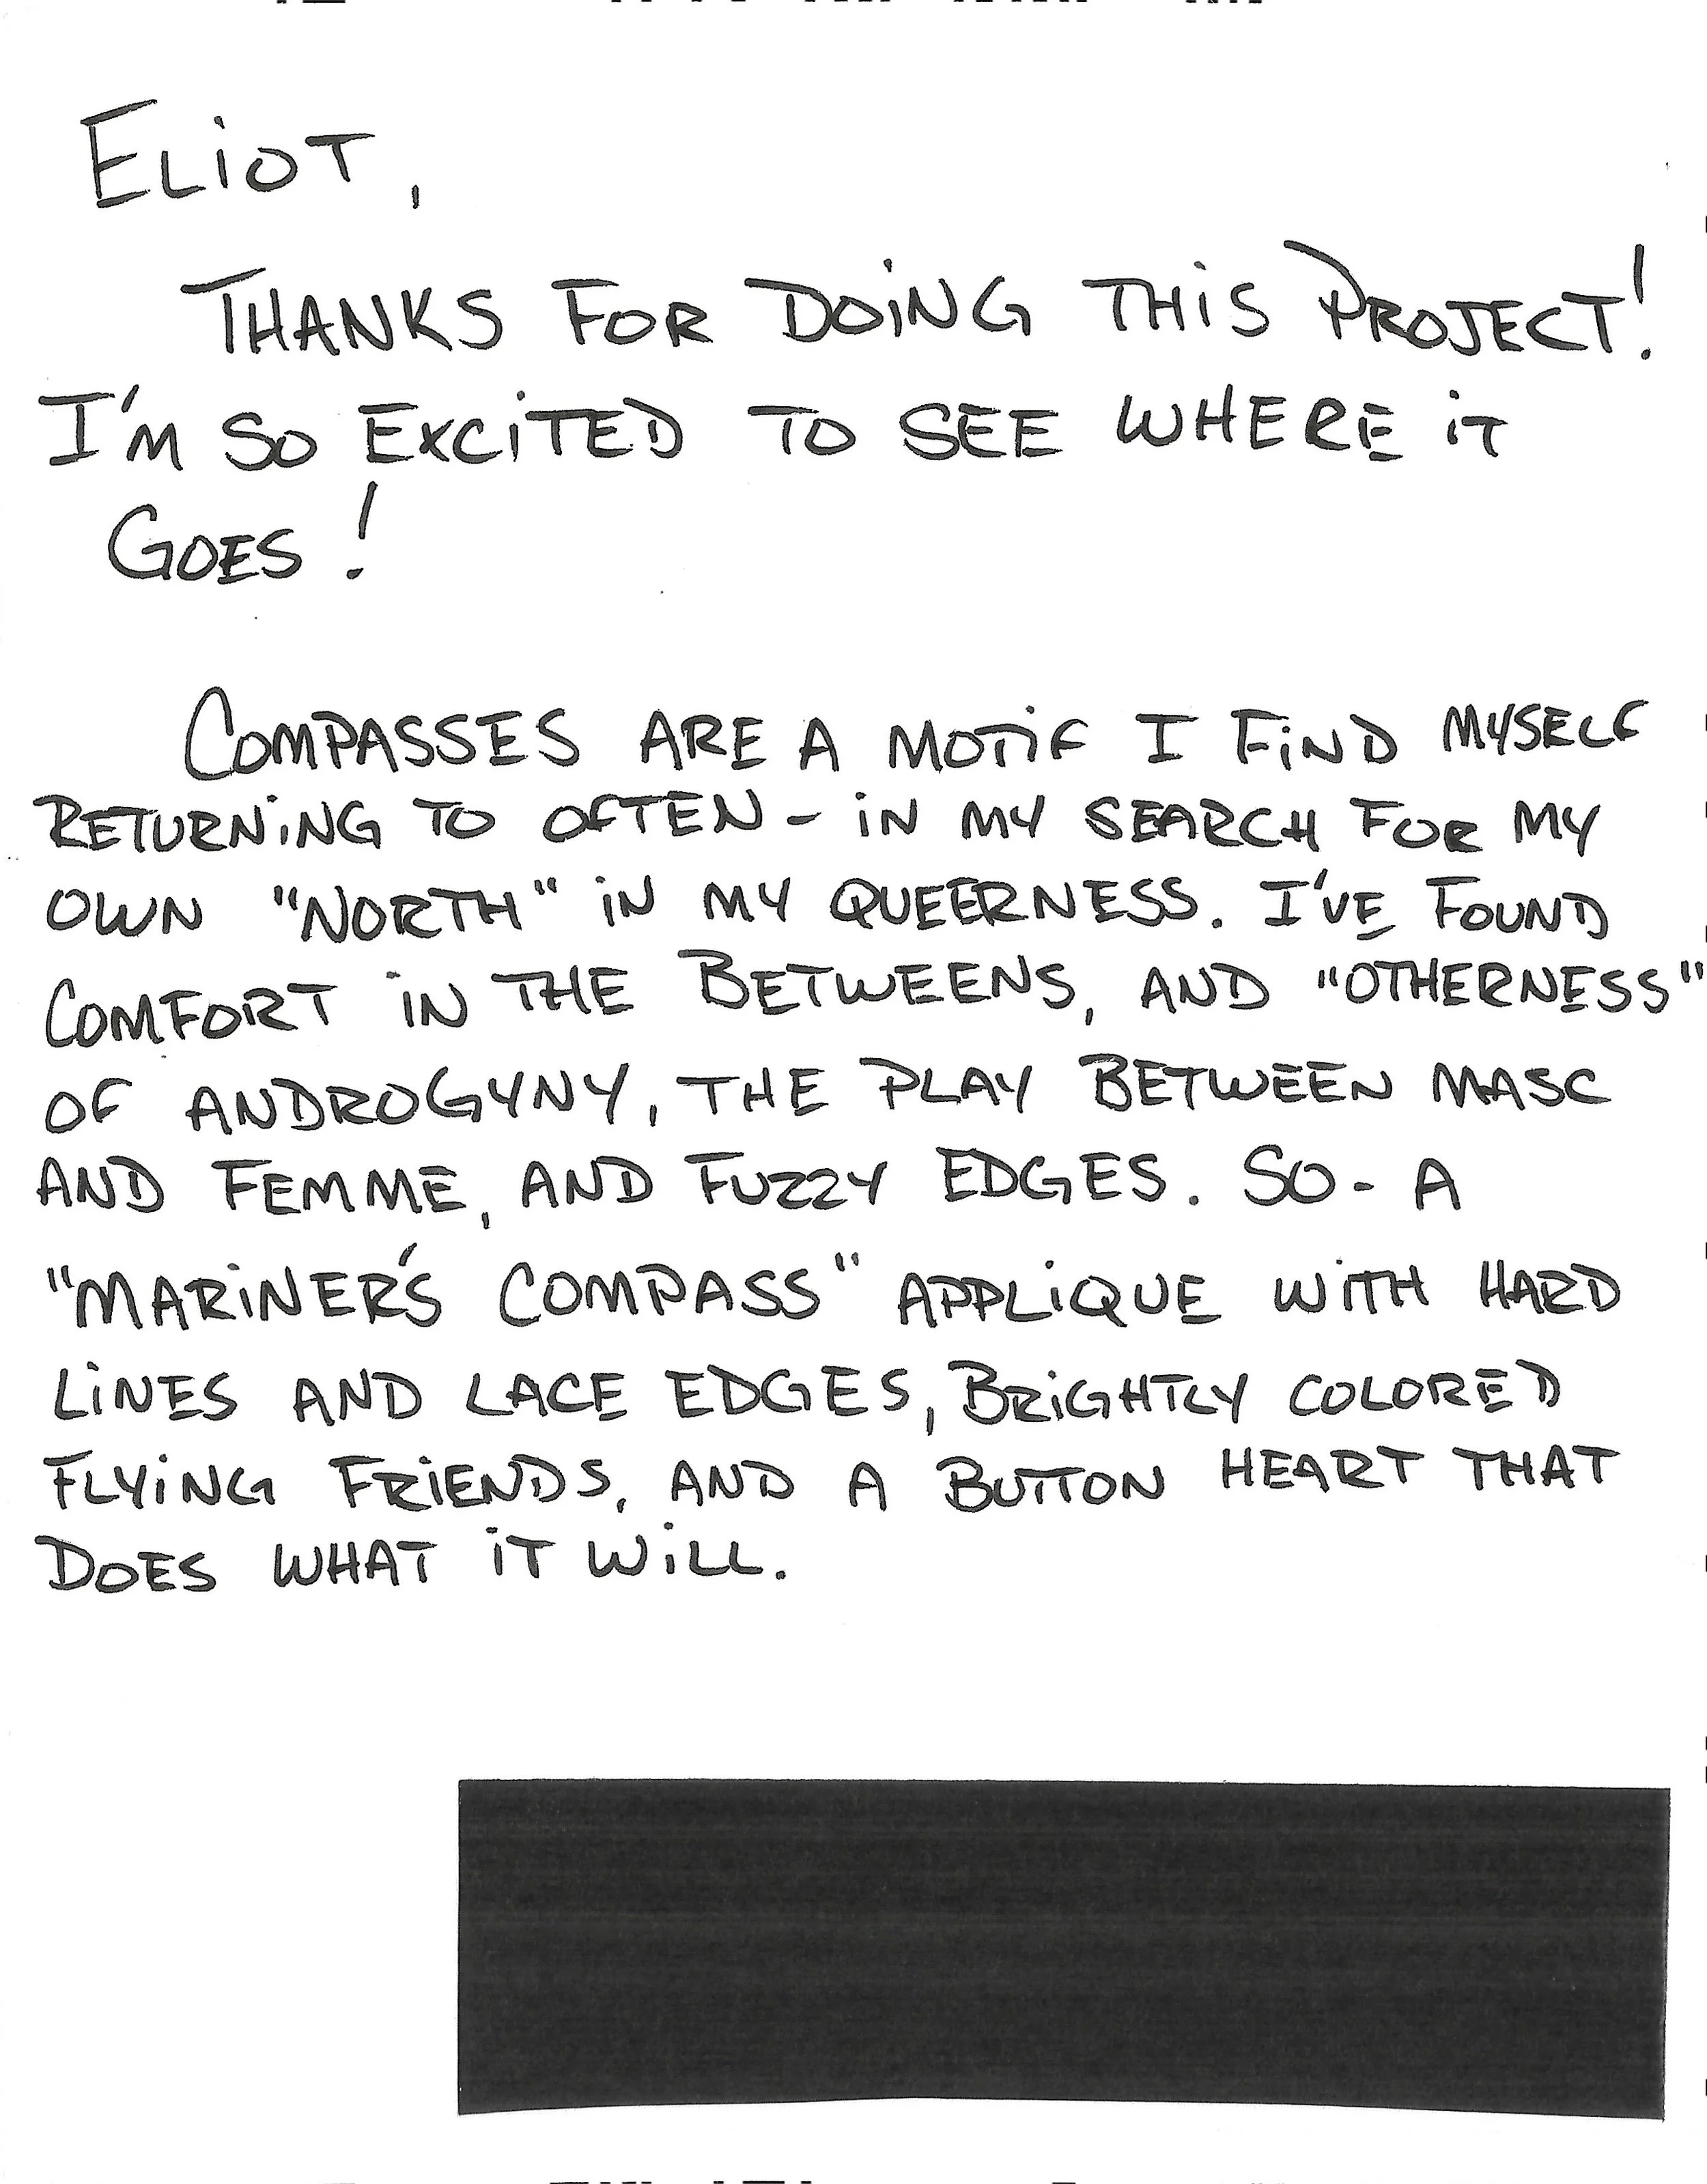 ELiOT,
THANKS FOR DOiNG THiS PROJECT!
I'M SO EXCiTED TO SEE WHERE iT
GOES!
COMPASSES ARE A MOTiF I FiND MYSELF
RETURNiNG TO OFTEN - iN MY SEARCH FOR MY
OWN "NORTH" iN MY QUEERNESS. I'VE FOUND
COMFORT iN THE BETWEENS, AND "OTHERNESS"
OF ANDROGYNY, THE PLAY BETWEEN MASC
AND FEMME, AND FUZZY EDGES. SO - A
"MARiNER'S COMPASS" APPLiQUE WiTH HARD
LiNES AND LACE EDGES, BRiGHTLY COLORED
FLYiNG FRiENDS, AND A BUTTON HEART THAT
DOES WHAT iT WiLL.